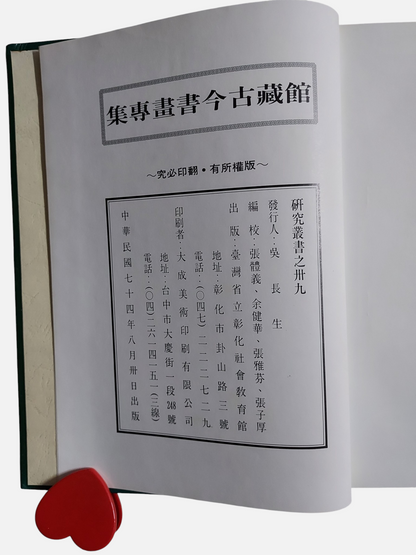 館藏古今書畫專集
~版權所有·翻印必究~
研究叢書之卅九
發行人：吳長生
編校：張體義、余健華、張雅芬、張子厚
出版：臺灣省立彰化社會教育館
地址：彰化市卦山路三號
電話：(○四七)二二二七二九
印刷者：大成美術印刷有限公司
地址：台中市大慶街一段248號
電話：(○四)二六一四一五一(三線)
中華民國七十四年八月卅日出版